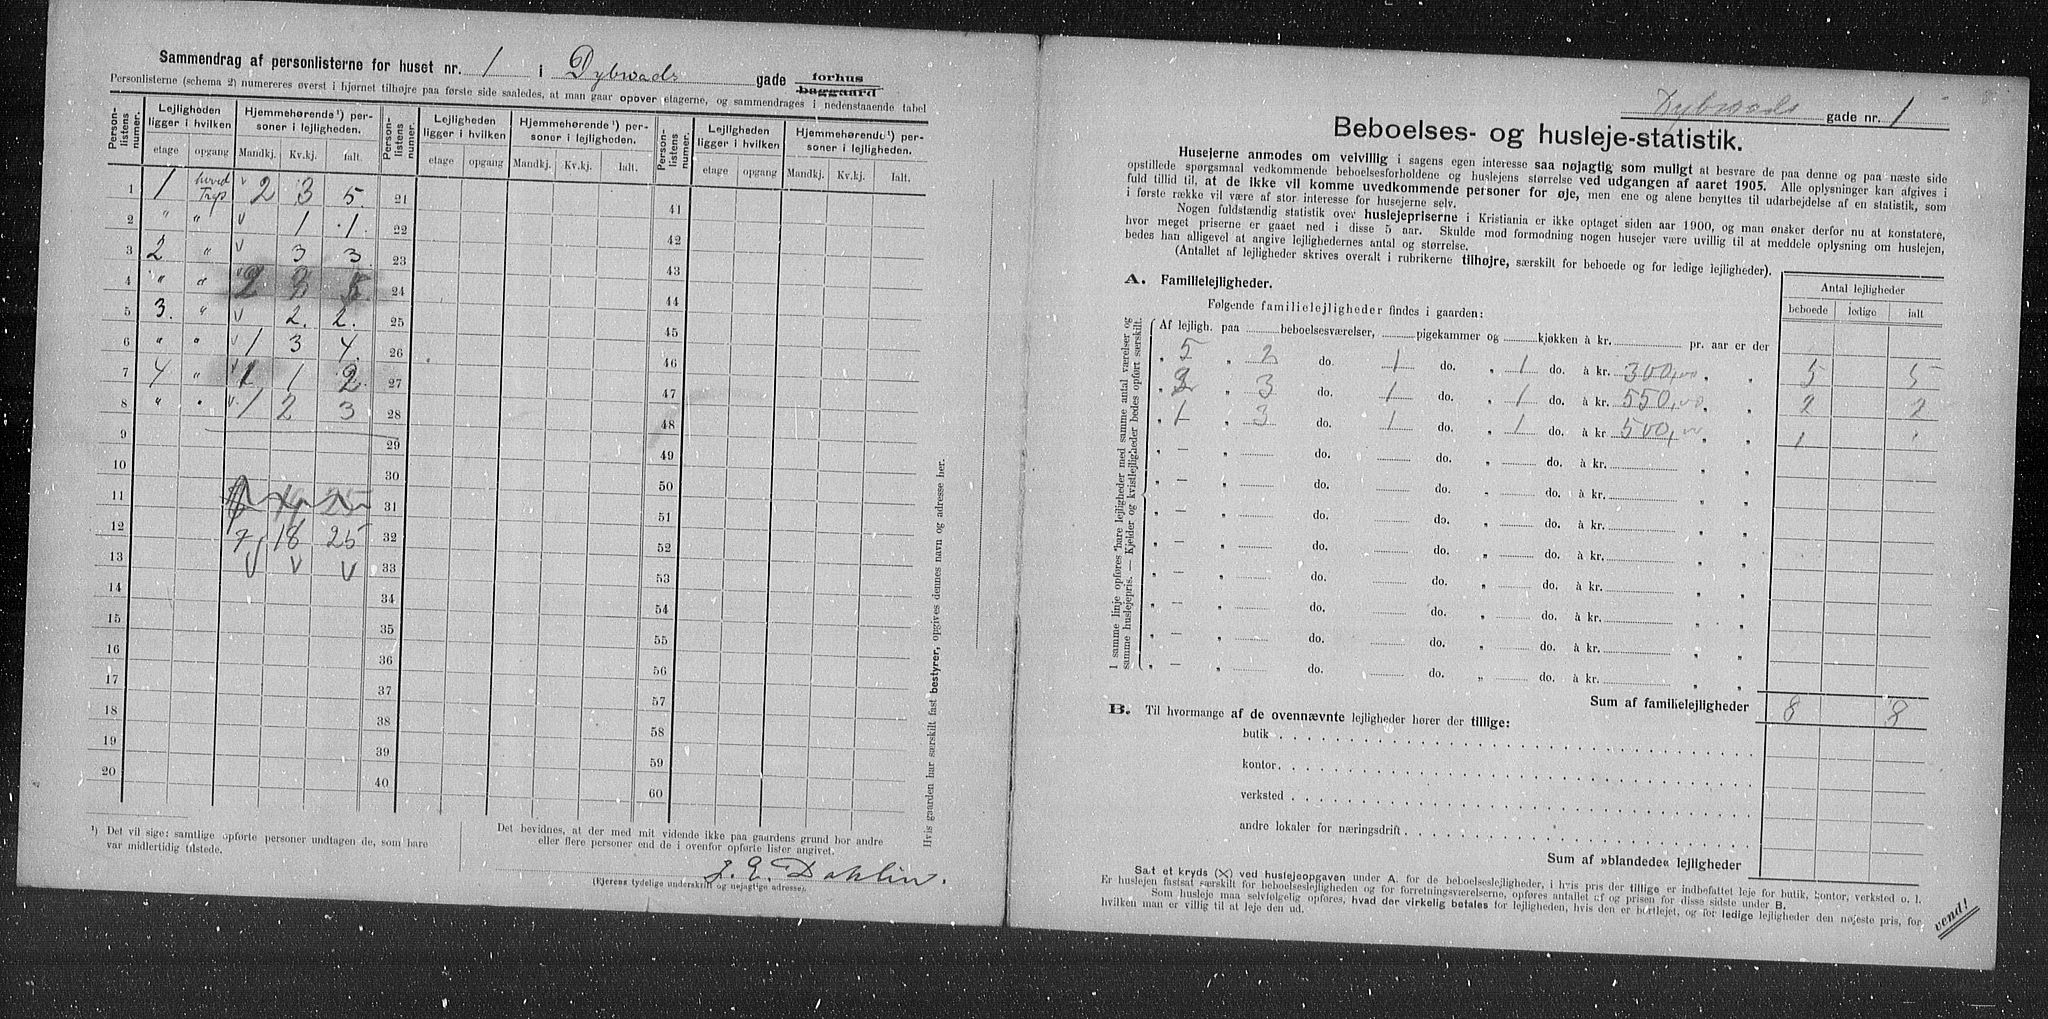 Sammendrag af personlisterne for huset nr. 1 i Dybwads gade forhus baggaard
Personlisterne (schema 2) numereres øverst i hjørnet tilhøjre paa første side saaledes, at man gaar opover etagerne, og sammendrages i nedenstaaende tabel
Person-listens numer. Lejligheden ligger i hvilken Hjemmehørende ¹) personer i lejligheden. Person-listens numer. Lejligheden ligger i hvilken Hjemmehørende ¹) personer i lejligheden. Person-listens numer. Lejligheden ligger i hvilken Hjemmehørende ¹) personer i lejligheden.
etage opgang Mandkj. Kv.kj. Ialt. etage opgang Mandkj. Kv.kj. Ialt. etage opgang Mandkj. Kv.kj. Ialt.
1 1 v 2 3 5. 21 41
2 " " v 1 1. 22 42
3 2 " v 3 3. 23 43
4 " " v 2 3 5 24 44
5 3. " v 2. 2. 25 45
6 " " v 1 3 4. 26 46
7 4 " v 1 1 2. 27 47
8 " " v 1 2 3 28 48
9 29 49
10 30 50
11 31 51
12 7 18 25 32 52
13 v v v 33 53
14 34 54
15 35 55
16 36 56
17 37 57
18 38 58
19 39 59
20 40 60
Hvis gaarden har særskilt fast bestyrer, opgives dennes navn og adresse her.
¹) Det vil sige: samtlige opførte personer undtagen de, som bare
var midlertidig tilstede.
Det bevidnes, at der med mit vidende ikke paa gaardens grund bor andre
eller flere personer end de i ovenfor opførte lister angivet.
J. E. Dahlin.
(Ejerens tydelige underskrift og nøjagtige adresse).
Dybwads gade nr. 1
Beboelses- og husleje-statistik.
Husejerne anmodes om velvillig i sagens egen interesse saa nøjagtig som muligt at besvare de paa denne og paa næste side
opstillede spørgsmaal vedkommende beboelsesforholdene og huslejens størrelse ved udgangen af aaret 1905. Alle oplysninger kan afgives i
fuld tillid til, at de ikke vil komme uvedkommende personer for øje, men ene og alene benyttes til udarbejdelse af en statistik, som
i første række vil være af stor interesse for husejerne selv.
Nogen fuldstændig statistik over huslejepriserne i Kristiania er ikke optaget siden aar 1900, og man ønsker derfor nu at konstatere,
hvor meget priserne er gaaet ned i disse 5 aar. Skulde mod formodning nogen husejer være uvillig til at meddele oplysning om huslejen,
bedes han alligevel at angive lejlighedernes antal og størrelse.
(Antallet af lejligheder skrives overalt i rubrikerne tilhøjre, særskilt for beboede og for ledige lejligheder).
A. Familielejligheder.
Antal lejligheder
Følgende familielejligheder findes i gaarden:
beboede ledige ialt
I samme linje opføres bare lejligheder med samme antal værelser og
samme huslejepris. — Kjelder og kvistlejligheder bedes opført særskilt.
Af lejligh. paa beboelsesværelser, pigekammer og kjøkken à kr. pr. aar er der
" 5 " 2 do. 1 do. " 1 do. à kr. 300,00 " " 5 5
" 2 " 3 do. 1 do. " 1 do. à kr. 550,00 " " 2 2
" 1 " 3 do. 1 do. " 1 do. à kr 500,00 " " 1 1
" — " do. do. " do. à kr. " "
" — " do. do. " do. à kr. " "
" — " do. do. " do. à kr. " "
" — " do. do. " do. à kr. " "
" — " do. do. " do. à kr. " "
" — " do. do. " do. à kr. " "
" — " do. do. " do. à kr. " "
" — " do. do. " do. à kr. " "
Sum af familielejligheder 8 8
B. Til hvormange af de ovennævnte lejligheder hører der tillige:
butik
kontor
verksted
andre lokaler for næringsdrift
Sum af »blandede« lejligheder
Sæt et kryds (X) ved huslejeopgaven under A. for de beboelseslejligheder, i hvis pris der tillige er indbefattet leje for butik, kontor, verksted o. l.
Er huslejen fastsat særskilt for beboelseslejligheden og for forretningsværelserne, opføres antallet af og prisen for disse sidste under B.
Som husleje maa selvfølgelig opføres, hvad der virkelig betales for lejligheden, hvis den er bortlejet, og for ledige lejligheder den nøjeste pris, for
hvilken man er villig til at leje den ud.
vend!